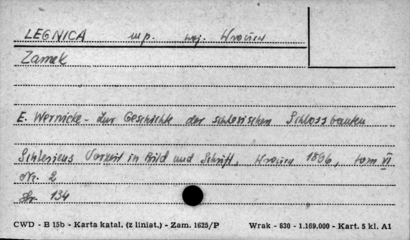 LEGNICA mp. woj. Wrocław
Zamek
E. Wernicke - Zur Geschichte der schlesischen Schlossbauten
Schlesiens Vorzeit in Bild und Schrift, Wrocław 1896, tom VI
Nr. 2
Str. 134
CWD - B 15b - Karta katal. (z liniat.) - Zam. 1625/P Wrak - 830 - 1.169.000 - Kart. 5 kl. A1